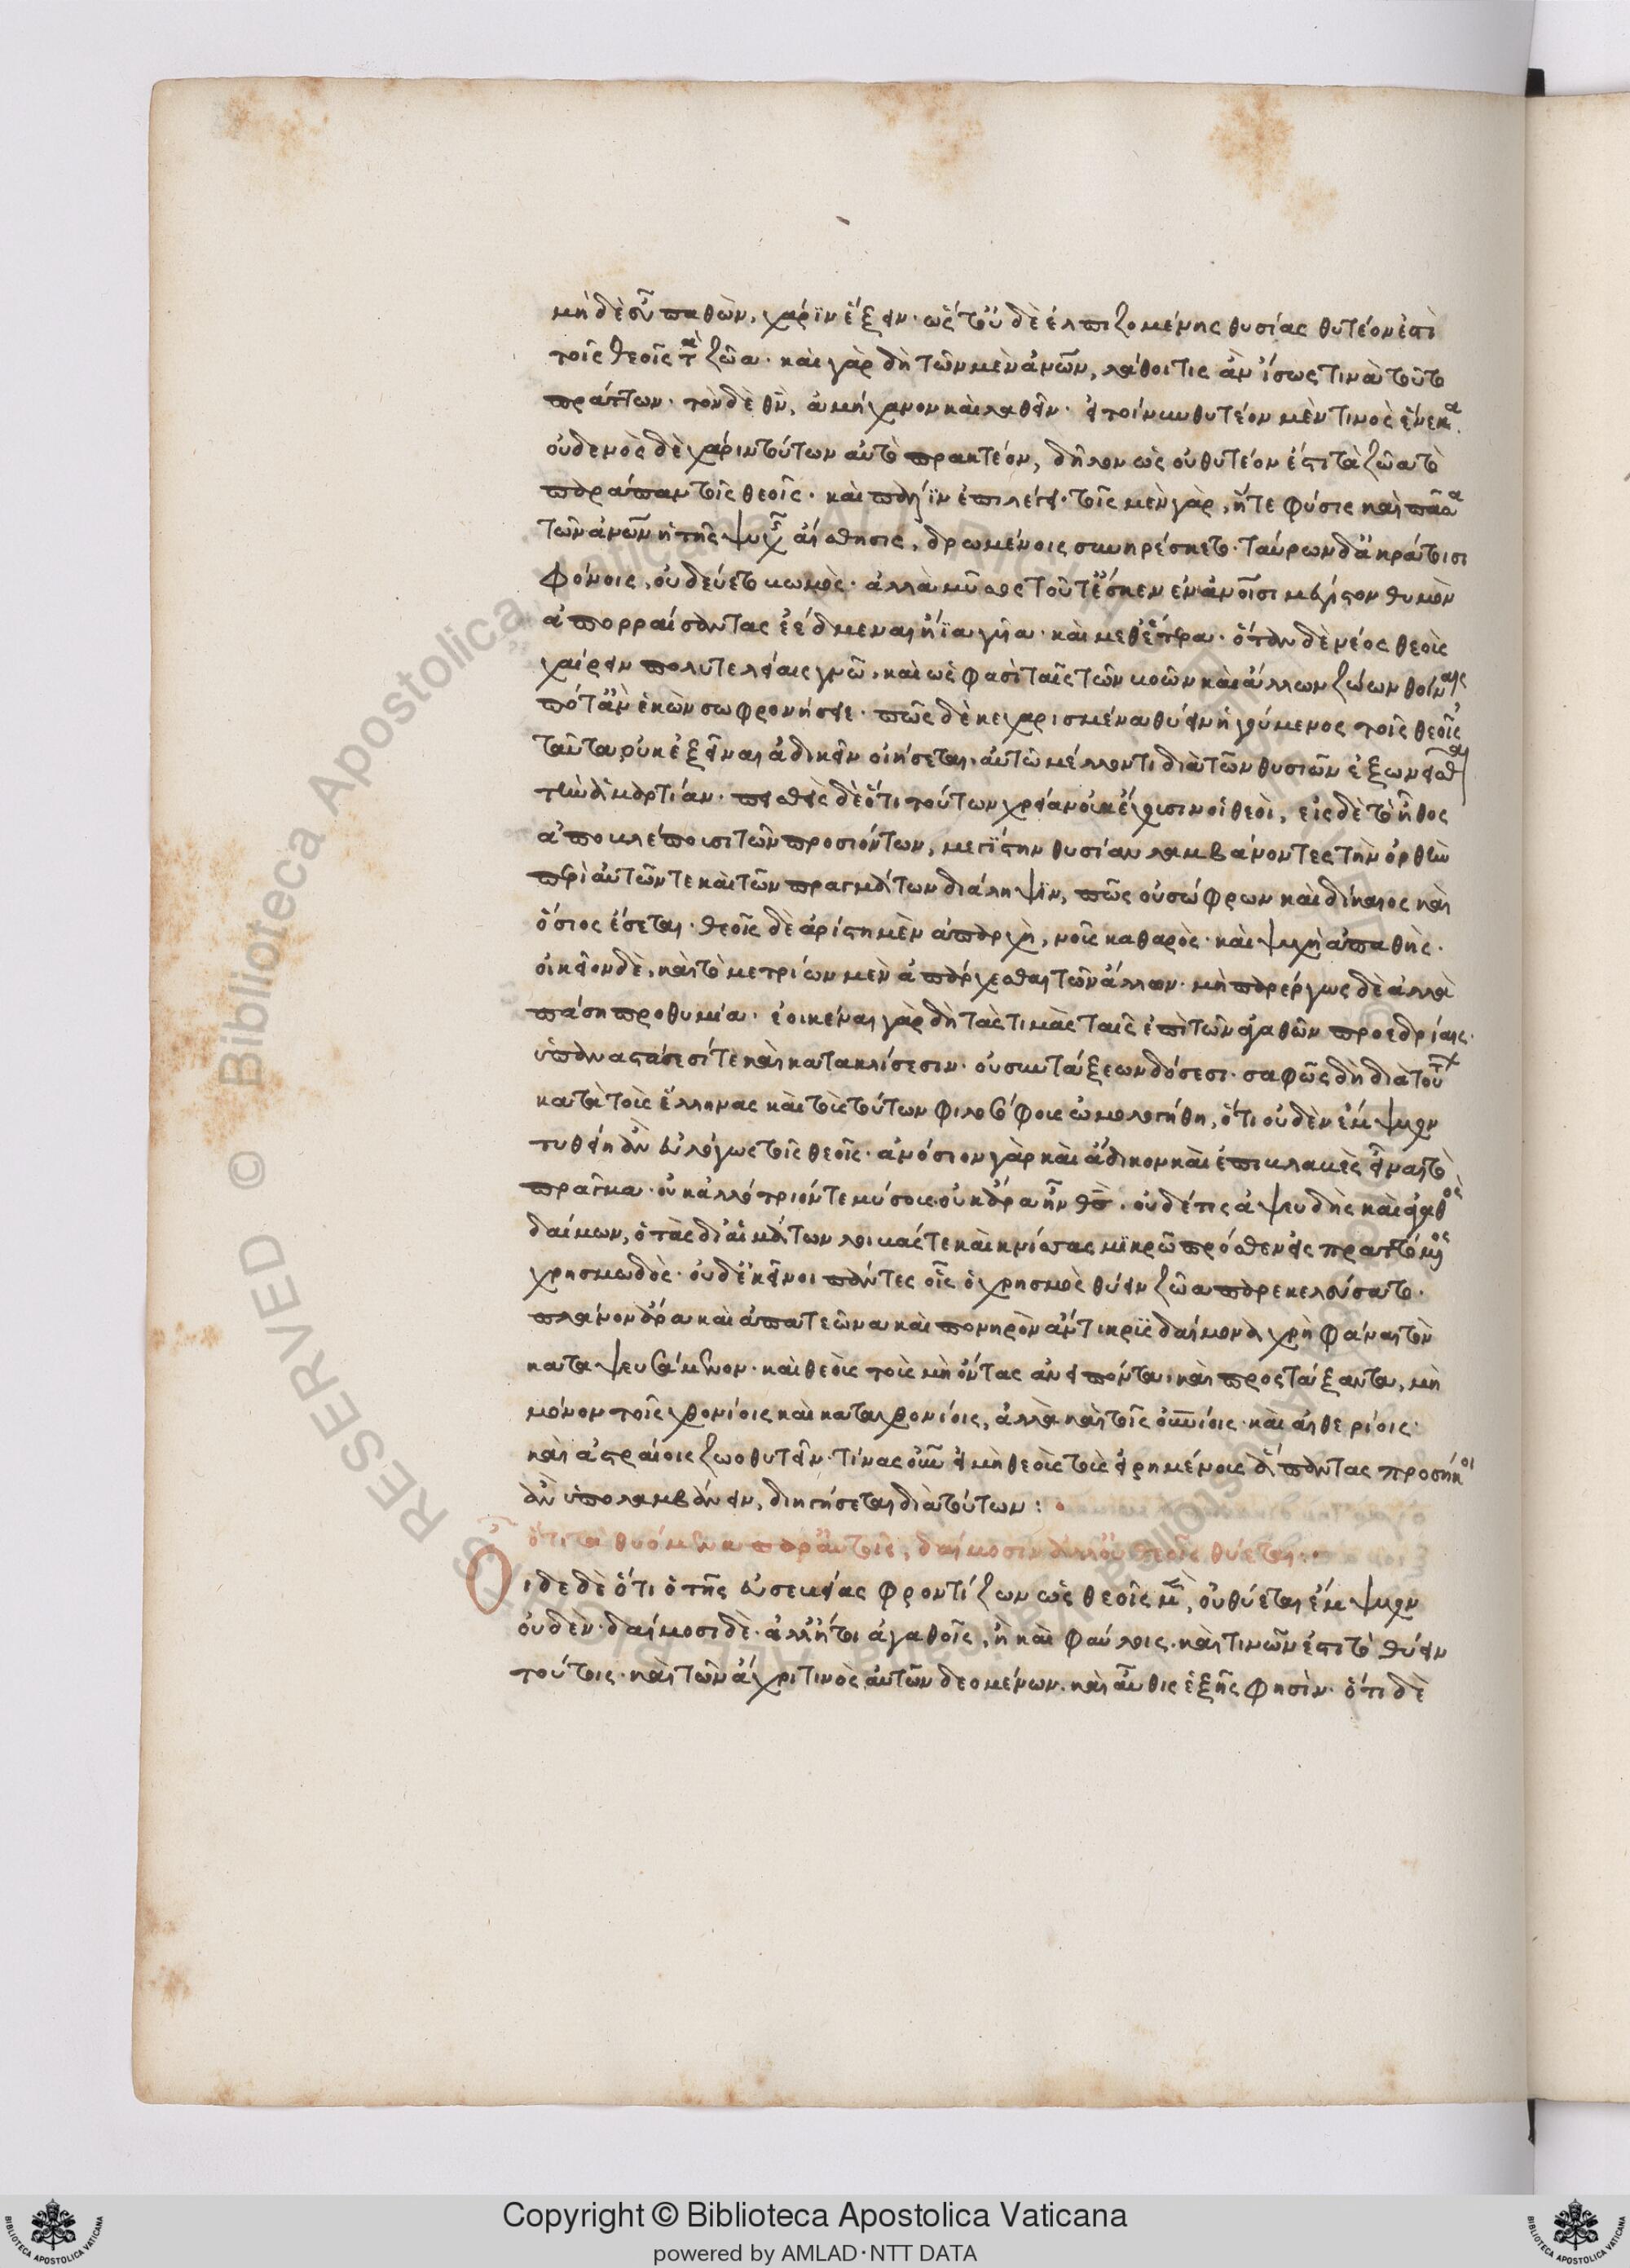 μὴ δὲ εὖ παθὼν, χάριν ἕξειν· ὥστ' οὐδὲ ἐλπιζομένης θυσίας θυτέον ἐστὶ
τοῖς θεοῖς τὰ ζῶα· καὶ γὰρ δὴ τῶν μὲν ἀνῶν, λάθοι τις ἂν ἴσως τινὰ τοῦτο
πράττων· τὸν δὲ θν̄, ἀμήχανον καὶ λαθεῖν· εἰ τοίνυν θυτέον μὲν τινὸς ἕνεκα
οὐδενὸς δὲ χάριν τούτων αὐτὸ πρακτέον, δῆλον ὡς οὐ θυτέον ἐστὶ τὰ ζῶα τὸ
παράπαν τοῖς θεοῖς· καὶ πάλιν ἐπιλέγει· τοῖς μὲν γὰρ, ἥτε φύσις καὶ πᾶσα
τῶν ἀνῶν ἡ τῆς ψυχῆς αἴσθησις, δρωμένοις συνηρέσκετο· ταύρων δ' ἀκράτοισι
φόνοις, οὐ δεύετο βωμὸς· ἀλλὰ μύσος τοῦτ' ἔσκεν ἐν ἀνοῖσι μέγιστον θυμὸν
ἀπορραίσαντας ἐέδμεναι ἤϊα γυῖα· καὶ μεθ' ἕτερα· ὅταν δὲ νέος θεοὺς
χαίρειν πολυτελείαις γνῶ, καὶ ὥς φασι ταῖς τῶν βοῶν καὶ ἄλλων ζώων θοίναις
πότ' ἂν ἑκὼν σωφρονήσειε· πῶς δὲ κεχαρισμένα θύειν ἡγούμενος τοῖς θεοῖς
ταῦτα, οὐκ ἐξεῖναι ἀδικεῖν οἰήσεται, αὐτῷ μέλλοντι διὰ τῶν θυσιῶν ἐξωνεῖσθαι
τὴν ἁμαρτίαν· πεισθεὶς δὲ ὅτι τούτων χρείαν οὐκ ἔχουσιν οἱ θεοὶ, εἰς δὲ τὸ ἦθος
ἀποβλέπουσι τῶν προσιόντων, μεγίστην θυσίαν λαμβάνοντες τὴν ὀρθὴν
περὶ αὐτῶν τε καὶ τῶν πραγμάτων διάληψιν, πῶς οὐ σώφρων καὶ δίκαιος καὶ
ὅσιος ἔσεται· θεοῖς δὲ ἀρίστη μὲν ἀπαρχὴ, νοῦς καθαρὸς· καὶ ψυχὴ ἀπαθὴς·
οἰκεῖον δὲ, καὶ τὸ μετρίων μὲν ἀπάρχεσθαι τῶν ἄλλων· μὴ παρέργως δὲ ἀλλὰ
πάσῃ προθυμίᾳ· ἐοικέναι γὰρ δὴ τὰς τιμὰς ταῖς ἐπὶ τῶν ἀγαθῶν προεδρίαις·
ὑπαναστάσεσί τε καὶ κατακλίσεσιν· οὐ συντάξεων δόσεσι· σαφῶς δὴ διὰ τούτων
κατὰ τοὺς ἕλληνας καὶ τοὺς τούτων φιλοσόφους ὡμολογήθη, ὅτι οὐδὲν ἔμψυχον
τυθείη ἂν εὐλόγως τοῖς θεοῖς· ἀνόσιον γὰρ καὶ ἄδικον καὶ ἐπιβλαβὲς εἶναι τὸ
πρᾶγμα· οὐκ ἀλλότριόν τε μύσους· οὐκ ἄρα ἦν θς̄· οὐδέ τις ἀψευδὴς καὶ ἀγαθὸς
δαίμων, ὁ τὰς δι' αἱμάτων λοιβάς τε καὶ κνίσσας μικρῷ πρόσθεν εἰσπραττόμενος
χρησμωδὸς· οὐδ' ἐκεῖνοι πάντες οἷς ὁ χρησμὸς θύειν ζῶα παρεκελεύσατο·
πλάνον ἄρα καὶ ἀπατεῶνα καὶ πονηρὸν ἄντικρυς δαίμονα χρὴ φάναι τὸν
καταψευσάμενον· καὶ θεοὺς τοὺς μὴ ὄντας ἀνειπόντα, καὶ προστάξαντα, μὴ
μόνον τοῖς χθονίοις καὶ καταχθονίοις, ἀλλὰ καὶ τοῖς οὐνίοις· καὶ αἰθερίοις·
καὶ ἀστραίοις ζωοθυτεῖν· τίνας οὖν εἰ μὴ θεοὺς τοὺς εἰρημένους ἅπαντας προσήκοι
ἂν ὑπολαμβάνειν, διηγήσεται διὰ τούτων:
ὅτι τὰ θυόμενα παρ' αὐτοῖς, δαίμοσιν ἀλλ' οὐ θεοῖς θύεται:
Οἶδε δὲ ὅτι ὁ τῆς εὐσεβείας φροντίζων ὡς θεοῖς μὲν, οὐ θύεται ἔμψυχον
οὐδὲν· δαίμοσι δὲ· ἀλλ' ἤτοι ἀγαθοῖς, ἢ καὶ φαύλοις· καὶ τινῶν ἐστι τὸ θύειν
τούτοις· καὶ τῶν ἄχρι τινὸς αὐτῶν δεομένων· καὶ αὖθις ἑξῆς φησὶν· ὅτι δὲ
RESERVED © Biblioteca Apostolica Vaticana
Copyright © Biblioteca Apostolica Vaticana
powered by AMLAD·NTT DATA